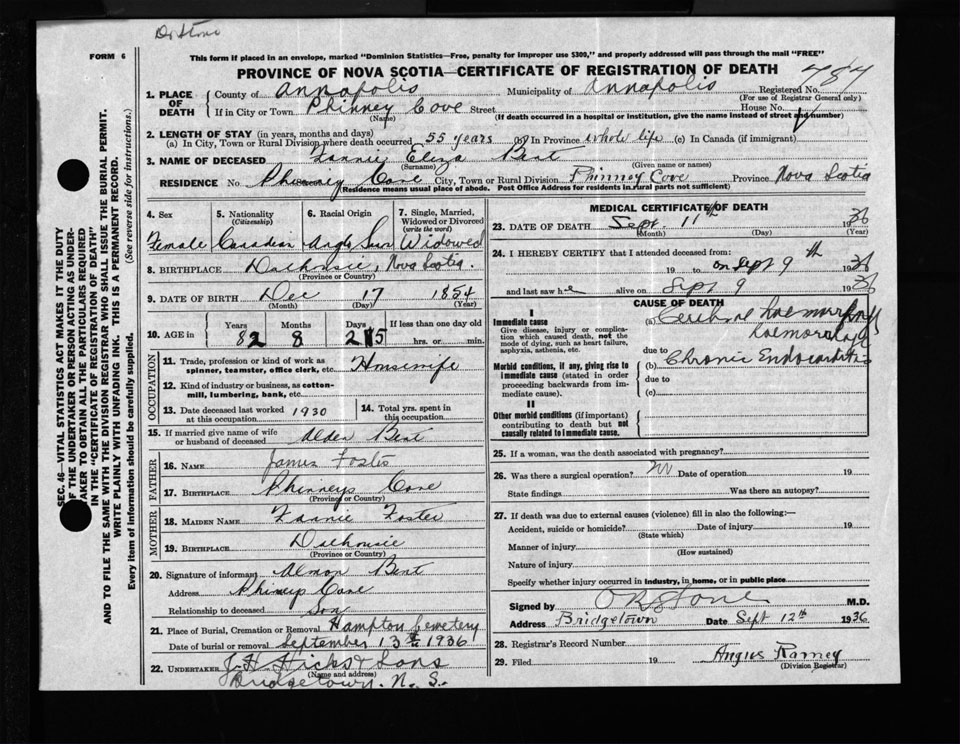 Dr Stone
FORM 6
This form if placed in an envelope, marked "Dominion Statistics—Free, penalty for improper use $300," and properly addressed will pass through the mail "FREE"
PROVINCE OF NOVA SCOTIA—CERTIFICATE OF REGISTRATION OF DEATH 787
1. PLACE OF DEATH County of Annapolis Municipality of Annapolis Registered No.
(For use of Registrar General only)
If in City or Town Phinney Cove Street House No.
(Name) (If death occurred in a hospital or institution, give the name instead of street and number)
2. LENGTH OF STAY (in years, months and days)
(a) In City, Town or Rural Division where death occurred 55 years (b) In Province whole life (c) In Canada (if immigrant)
3. NAME OF DECEASED Fannie Eliza Bent
(Surname) (Given name or names)
RESIDENCE No. Phinney Cove City, Town or Rural Division Phinney Cove Province Nova Scotia
(Residence means usual place of abode. Post Office Address for residents in rural parts not sufficient)
4. Sex 5. Nationality (Citizenship) 6. Racial Origin 7. Single, Married, Widowed or Divorced (write the word)
Female Canadian Anglo Saxon Widowed
8. BIRTHPLACE Dalhousie, Nova Scotia
(Province or Country)
9. DATE OF BIRTH Dec 17 1854
(Month) (Day) (Year)
10. AGE in Years Months Days If less than one day old
82 8 25 hrs. or min.
OCCUPATION
11. Trade, profession or kind of work as spinner, teamster, office clerk, etc. Housewife
12. Kind of industry or business, as cotton-mill, lumbering, bank, etc.
13. Date deceased last worked at this occupation 1930 14. Total yrs. spent in this occupation
15. If married give name of wife or husband of deceased Alden Bent
FATHER
16. NAME James Foster
17. BIRTHPLACE Phinneys Cove
(Province or Country)
MOTHER
18. MAIDEN NAME Fannie Foster
19. BIRTHPLACE Dalhousie
(Province or Country)
20. Signature of informant Almon Bent
Address Phinneys Cove
Relationship to deceased Son
21. Place of Burial, Cremation or Removal Hampton Cemetery
Date of burial or removal September 13th 1936
22. UNDERTAKER J. H. Hicks & Sons
(Name and address)
Bridgetown, N. S.
MEDICAL CERTIFICATE OF DEATH
23. DATE OF DEATH Sept. 11th 1936
(Month) (Day) (Year)
24. I HEREBY CERTIFY that I attended deceased from:
19 to on Sept 9th 1936
and last saw h e alive on Sept 9 1936
CAUSE OF DEATH
I
Immediate cause
Give disease, injury or complication which caused death, not the mode of dying, such as heart failure, asphyxia, asthenia, etc.
(a) Cerebral haemorrhage
due to
Morbid conditions, if any, giving rise to immediate cause (stated in order proceeding backwards from immediate cause).
(b) Chronic Endocarditis
due to
(c)
II
Other morbid conditions (if important) contributing to death but not causally related to immediate cause.
25. If a woman, was the death associated with pregnancy?
26. Was there a surgical operation? no Date of operation 19
State findings Was there an autopsy?
27. If death was due to external causes (violence) fill in also the following:—
Accident, suicide or homicide? Date of injury 19
(State which)
Manner of injury
(How sustained)
Nature of injury
Specify whether injury occurred in industry, in home, or in public place
Signed by O R Stone M.D.
Address Bridgetown Date Sept 12th 1936
28. Registrar's Record Number
29. Filed 19 Angus Ramey
(Division Registrar)
SEC. 46—VITAL STATISTICS ACT MAKES IT THE DUTY
OF THE UNDERTAKER OR PERSON ACTING AS UNDER-
TAKER TO OBTAIN ALL THE PARTICULARS REQUIRED
IN THE "CERTIFICATE OF REGISTRATION OF DEATH"
AND TO FILE THE SAME WITH THE DIVISION REGISTRAR WHO SHALL ISSUE THE BURIAL PERMIT.
WRITE PLAINLY WITH UNFADING INK. THIS IS A PERMANENT RECORD.
Every item of information should be carefully supplied. (See reverse side for instructions.)